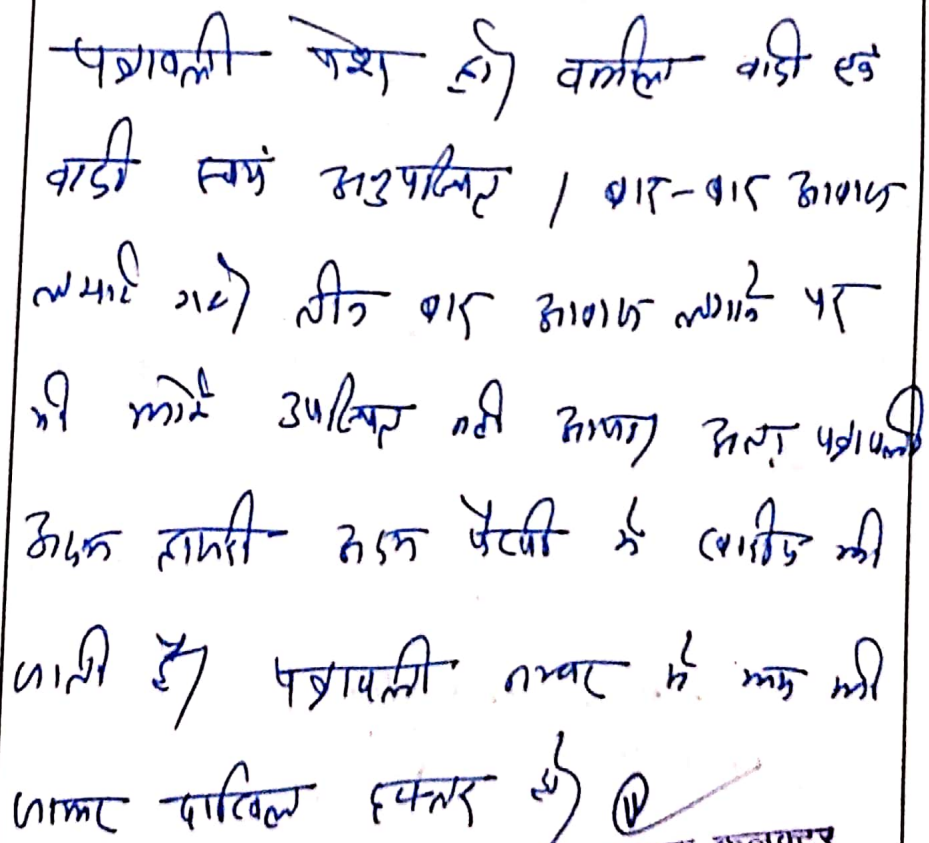 पत्रावली पेश हो। वकील वादी एवं
वादी स्वयं अनुपस्थित । बार-बार आवाज
लगाई गई। तीन बार आवाज लगाने पर
भी कोई उपस्थित नहीं आया। अतः पत्रावली
अदम हाजरी अदम पैरवी में खारीज की
जाती है। पत्रावली नम्बर से कम की
जाकर दाखिल दफ्तर हो।